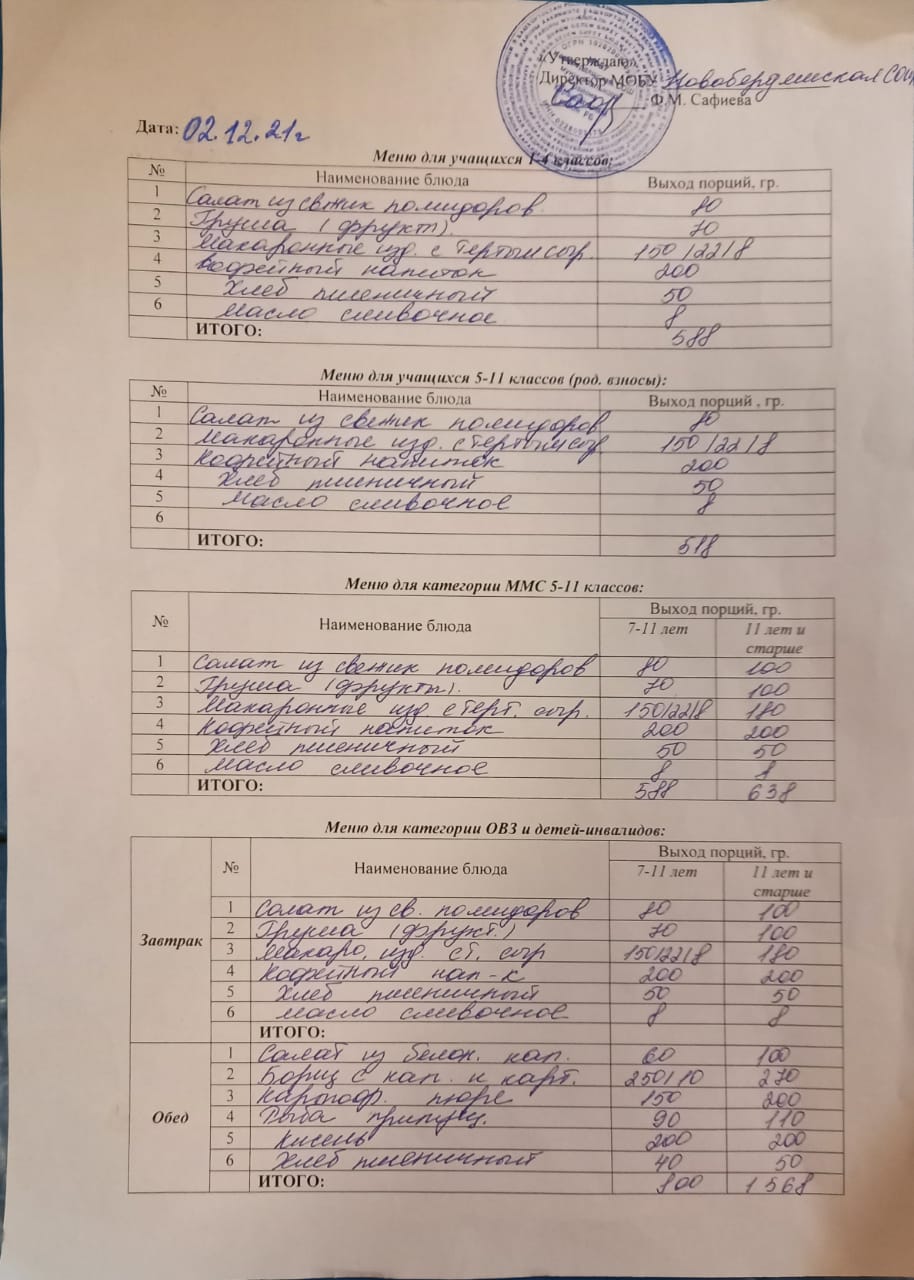 «Утверждаю»
Директор МОБУ Новобердяшская СОШ
Ф.М. Сафиева
Дата: 02.12.21г
Меню для учащихся 1-4 классов:
№ Наименование блюда Выход порций, гр.
1 Салат из свежих помидоров 80
2 Груша (фрукт). 70
3 Макаронные изд. с тертым сыр. 150/22/8
4 Кофейный напиток 200
5 Хлеб пшеничный 50
6 Масло сливочное 8
ИТОГО: 588
Меню для учащихся 5-11 классов (род. взносы):
№ Наименование блюда Выход порций , гр.
1 Салат из свежих помидоров 80
2 Макаронные изд. с тертым сыр 150/22/8
3 Кофейный напиток 200
4 Хлеб пшеничный 50
5 Масло сливочное 8
6
ИТОГО: 518
Меню для категории ММС 5-11 классов:
№ Наименование блюда Выход порций, гр.
7-11 лет 11 лет и старше
1 Салат из свежих помидоров 80 100
2 Груша (фрукты). 70 100
3 Макаронные изд с терт. сыр. 150/22/8 180
4 Кофейный напиток 200 200
5 Хлеб пшеничный 50 50
6 Масло сливочное 8 8
ИТОГО: 588 638
Меню для категории ОВЗ и детей-инвалидов:
№ Наименование блюда Выход порций, гр.
7-11 лет 11 лет и старше
Завтрак
1 Салат из св. помидоров 80 100
2 Груша (фрукт.) 70 100
3 Макаро. изд. ст. сыр 150/22/8 180
4 Кофейный нап-к 200 200
5 Хлеб пшеничный 50 50
6 Масло сливочное 8 8
ИТОГО:
Обед
1 Салат из белок. кап. 60 100
2 Борщ с кап. и карт. 250/10 270
3 Картоф. пюре 150 200
4 Рыба припущ. 90 110
5 Кисель 200 200
6 Хлеб пшеничный 40 50
ИТОГО: 800 1568